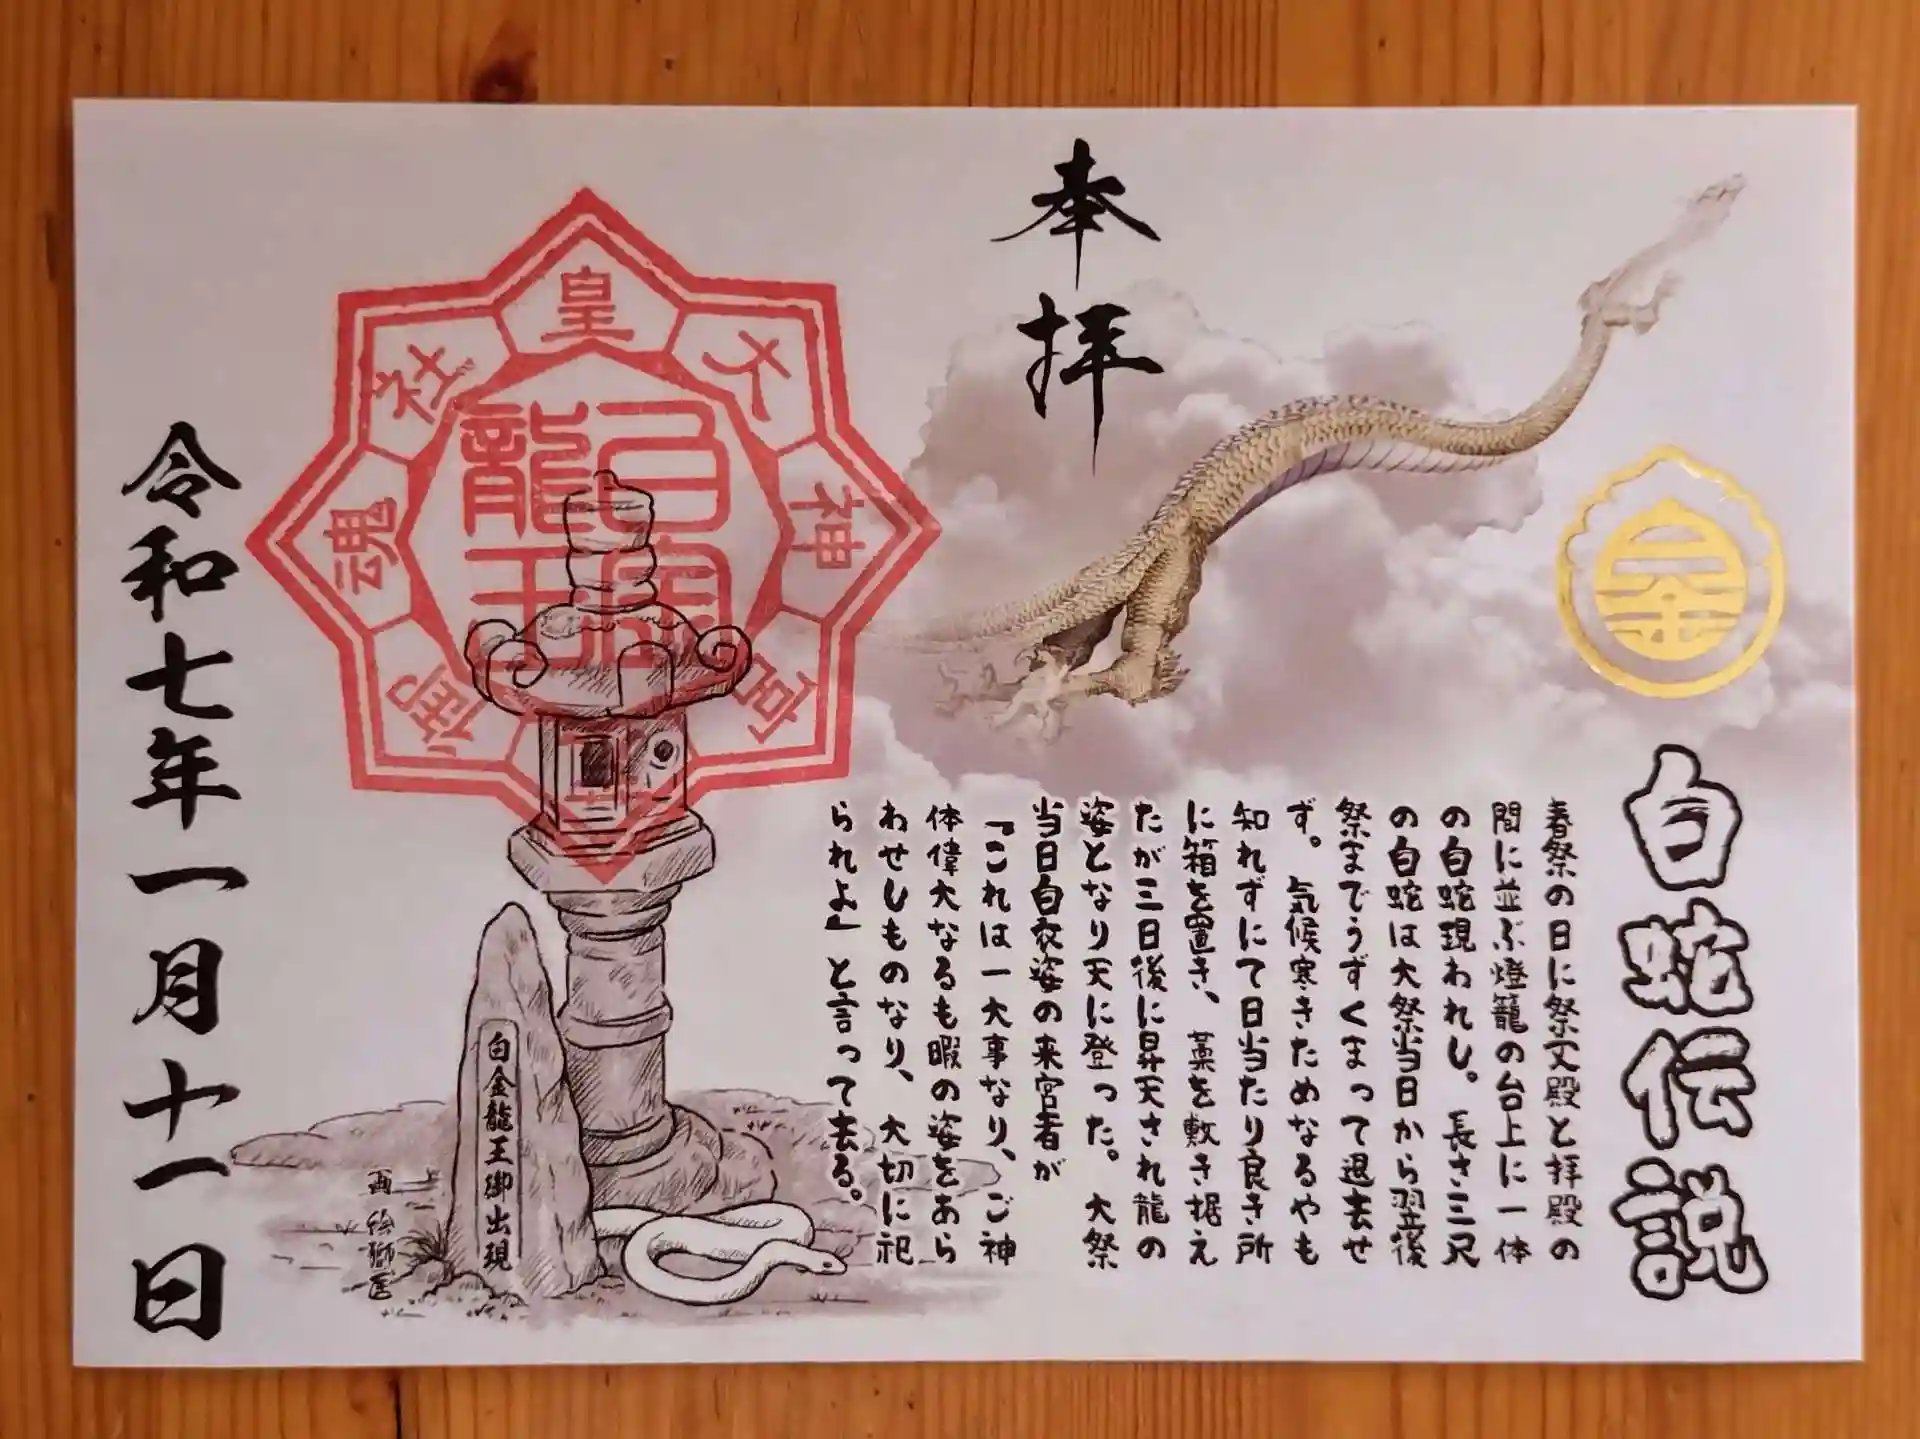 奉拝
金
白蛇伝説
春祭の日に祭文殿と拝殿の
間に並ぶ燈籠の台上に一体
の白蛇現われし。長さ三尺
の白蛇は大祭当日から翌後
祭までうずくまって退去せ
ず。気候寒きためなるやも
知れずにて日当たり良き所
に箱を置き、藁を敷き据え
たが三日後に昇天され龍の
姿となり天に登った。大祭
当日白衣姿の来宮者が
「これは一大事なり、ご神
体偉大なるも暇の姿をあら
わせしものなり、大切に祀
られよ」と言って去る。
皇
大
神
宮
御
魂
社
龍王
白金龍王御出現
画
令和七年一月十一日